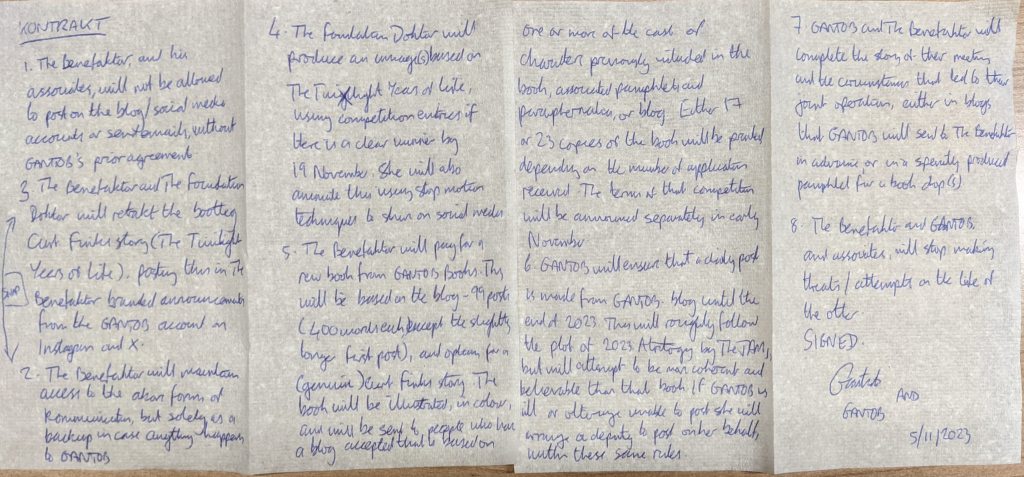 KONTRAKT
1. The Benefaktor, and his
associates, will not be allowed
to post on the blog/social media
accounts or send emails, without
GANTOB's prior agreement
3. The Benefaktor and The Foundation
Doktor will retakt the bootleg
Curt Finks story (The Twilight
Years of Life), posting this in The
Benefaktor branded announcements
from the GANTOB account on
Instagram and X.
SWAP
2. The Benefaktor will maintain
access to the above forms of
Kommunikation, but solely as a
backup in case anything happens
to GANTOB
4. The Foundation Doktor will
produce an image(s) based on
The Twilight Years of Life,
using competition entries if
there is a clear winner by
19 November. She will also
animate this using stop motion
techniques to share on social media
5. The Benefaktor will pay for a
new book from GANTOB Books. This
will be based on the blog - 99 posts
(400 words each, except the slightly
longer first post), and option for a
(genuine) Curt Finks story. The
book will be illustrated, in colour,
and will be sent to people who have
a blog accepted that is based on
one or more of the cast of
characters previously included in the
book, associated pamphlets and
paraphernalia, or blog. Either 17
or 23 copies of the book will be printed
depending on the number of applications
received. The terms of that competition
will be announced separately in early
November
6. GANTOB will ensure that a daily post
is made from GANTOB.blog until the
end of 2023. This will roughly follow
the plot of 2023 A trilogy by The JAMs,
but will attempt to be more coherent and
believable than that book. If GANTOB is
ill or otherwise unable to post she will
arrange a deputy to post on her behalf,
within these same rules.
7. GANTOB and The Benefaktor will
complete the story of their meeting
and the circumstances that led to their
joint operation, either in blogs
that GANTOB will send to The Benefaktor
in advance or in a specially produced
pamphlet for a book drop(s)
8. The Benefaktor and GANTOB,
and associates, will stop making
threats/attempts on the life of
the other
SIGNED.
Gantob
GANTOB
AND
5/11/2023